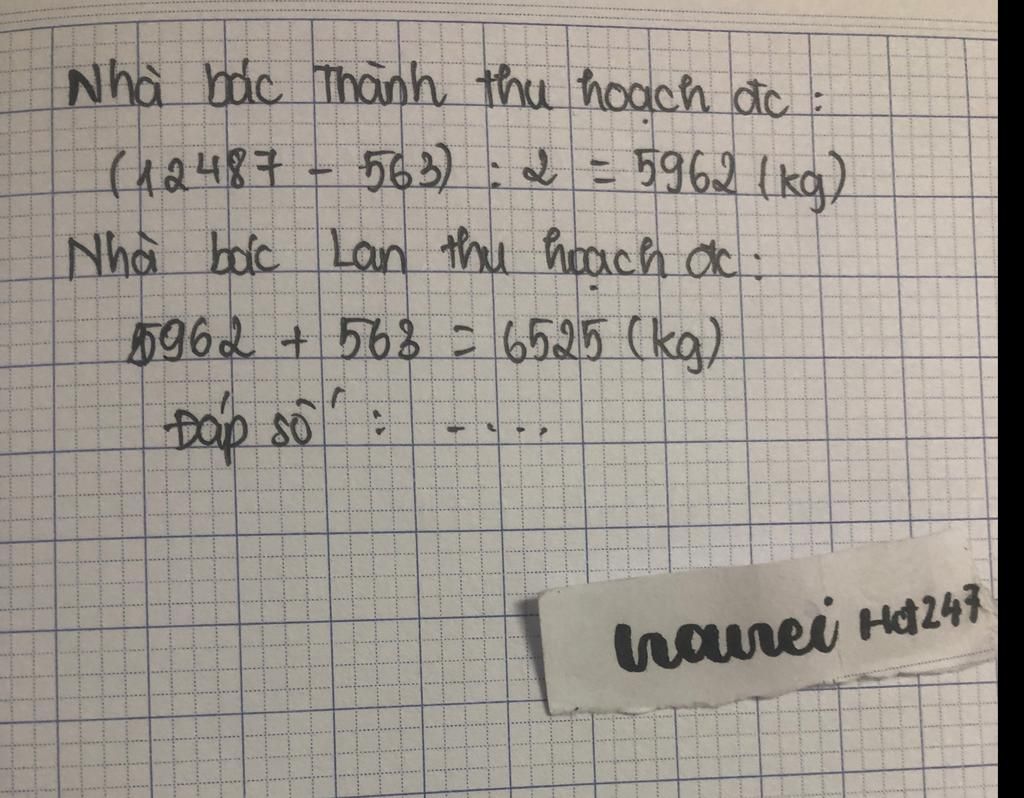 Nhà bác Thành thu hoạch đc :
(12487 - 563) : 2 = 5962 (kg)
Nhà bác Lan thu hoạch đc :
5962 + 563 = 6525 (kg)
Đáp số : - . . . .
Hd247